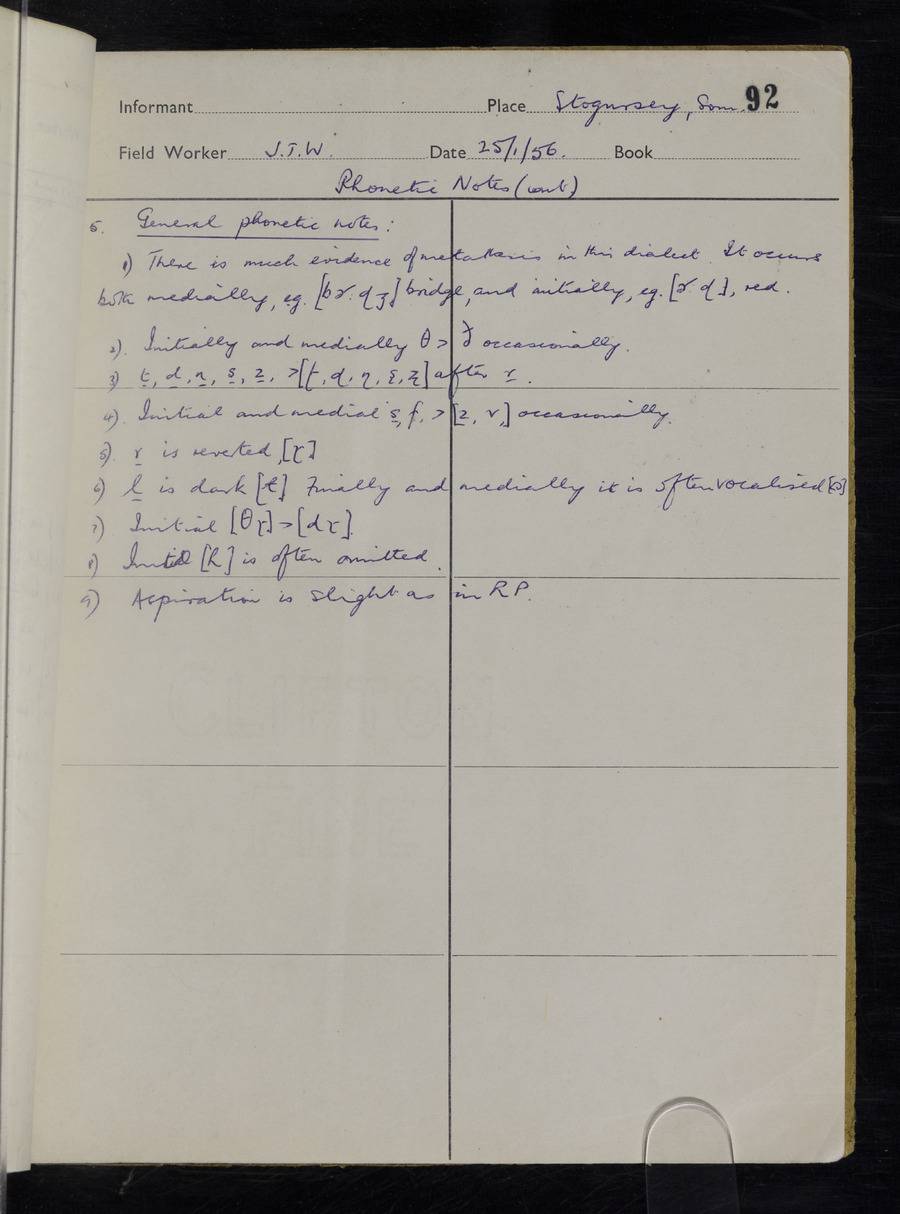 Informant Place Stogursey, Som. 92
Field Worker J.T.W. Date 25/1/56. Book
Phonetic Notes (cont)
5. General phonetic notes:
1) There is much evidence of metathesis in this dialect. It occurs
both medially, eg. bridge, and initially, eg. red.
2). Initially and medially θ > ð occasionally.
3) t, d, n, s, z, > [ʈ, ɖ, ɳ, ʂ, ʐ] after r.
4) Initial and medial s, f, > [z, v,] occasionally.
5). r is reverted, [ɽ]
6) l is dark [ɫ] Finally and medially it is often vocalised
7) Initial [θɽ] > [dɽ].
8) Initial [h] is often omitted.
9) Aspiration is slight as in RP.
CLIFTON